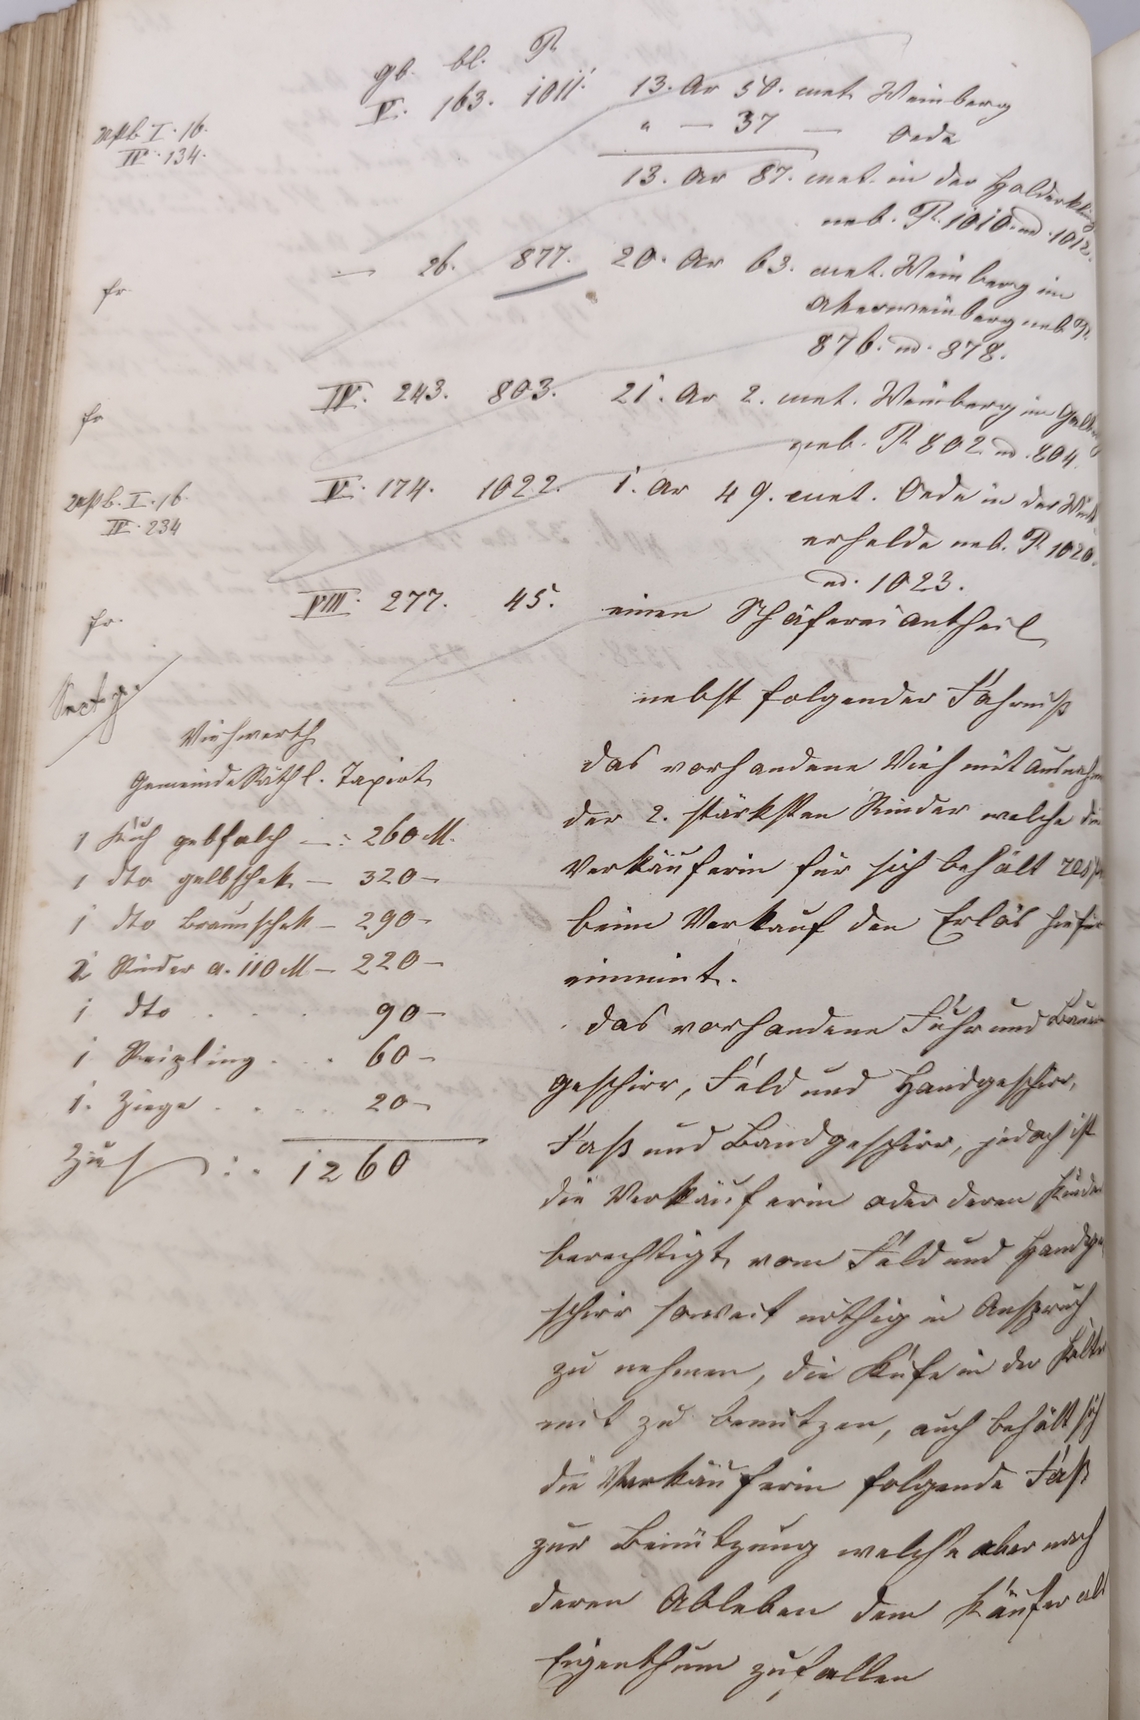 gb. bl. P.
V. 163. 1011. 13. Ar 50. met. Weinberg
I. 16.
IV. 134.
" — 37 — Oede
13. Ar 87. met. in der
neb. P. 1010. und 1012.
— 26. 877. 20. Ar 63. met. Weinberg im
fr
neb. P.
876. und 878.
IV. 243. 803. 21. Ar 2. met. Weinberg im
fr
neb. P. 802. und 804.
V. 174. 1022. 1. Ar 49. met. Oede in der
I. 16
IV. 234
erhalde neb. P. 1020.
und 1023.
VIII. 277. 45. einen Schäferei Antheil
fr.
nebst folgender Fahrniß
Viehwerth
Gemeinderäthl. Taxirt
das vorhandene Vieh mit Ausnahm
der 2. stärksten Rinder welche die
Verkäuferin für sich behält resp.
beim Verkauf den Erlös hiefür
einnimt.
1 Kuh gelbfalch — : 260 M.
1 dto gelbschek — 320 —
1 dto Braunschek — 290 —
2 Rinder a. 110 M — 220 —
1 dto . . . 90 —
1 . . 60 —
1. Ziege . . . . 20 —
Zus. : . 1260
das vorhandene Fuhr und Bauern
geschirr, Feld und Handgeschirr,
Faß und Bandgeschirr, jedoch ist
die Verkäuferin oder deren Kinder
berechtigt vom Feld und Handge
schirr soweit nöthig in Anspruch
zu nehmen, die Kufe in der Kelter
mit zu benützen, auch behält sich
die Verkäuferin folgende Faß
zur Benützung welche aber nach
deren Ableben dem Käufer als
Eigenthum zufallen